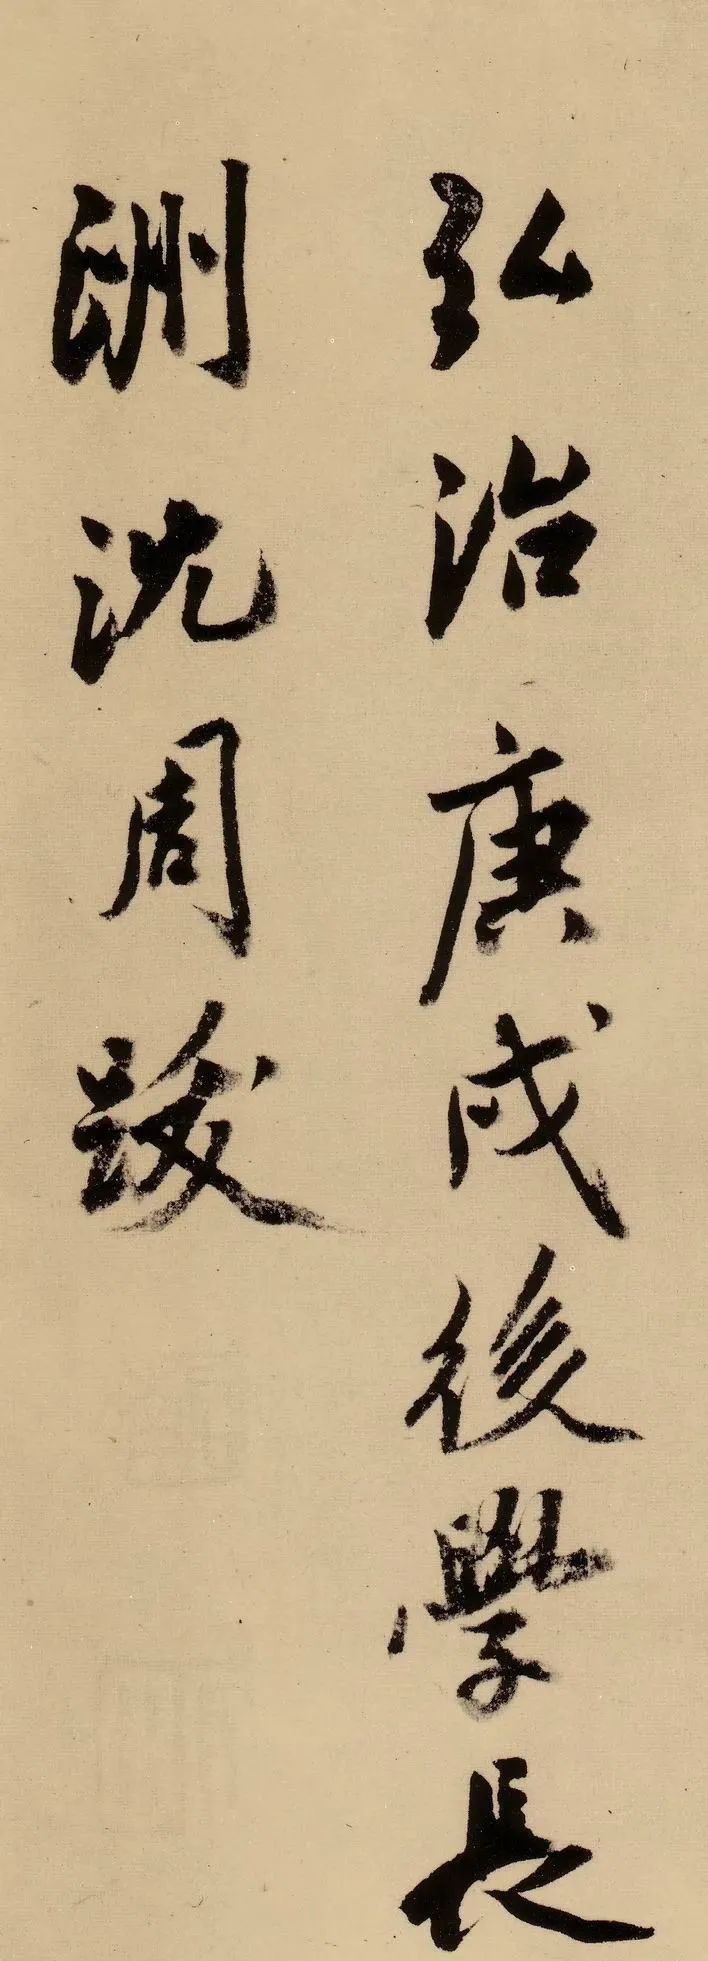 弘治庚戌後學長
洲沈周跋